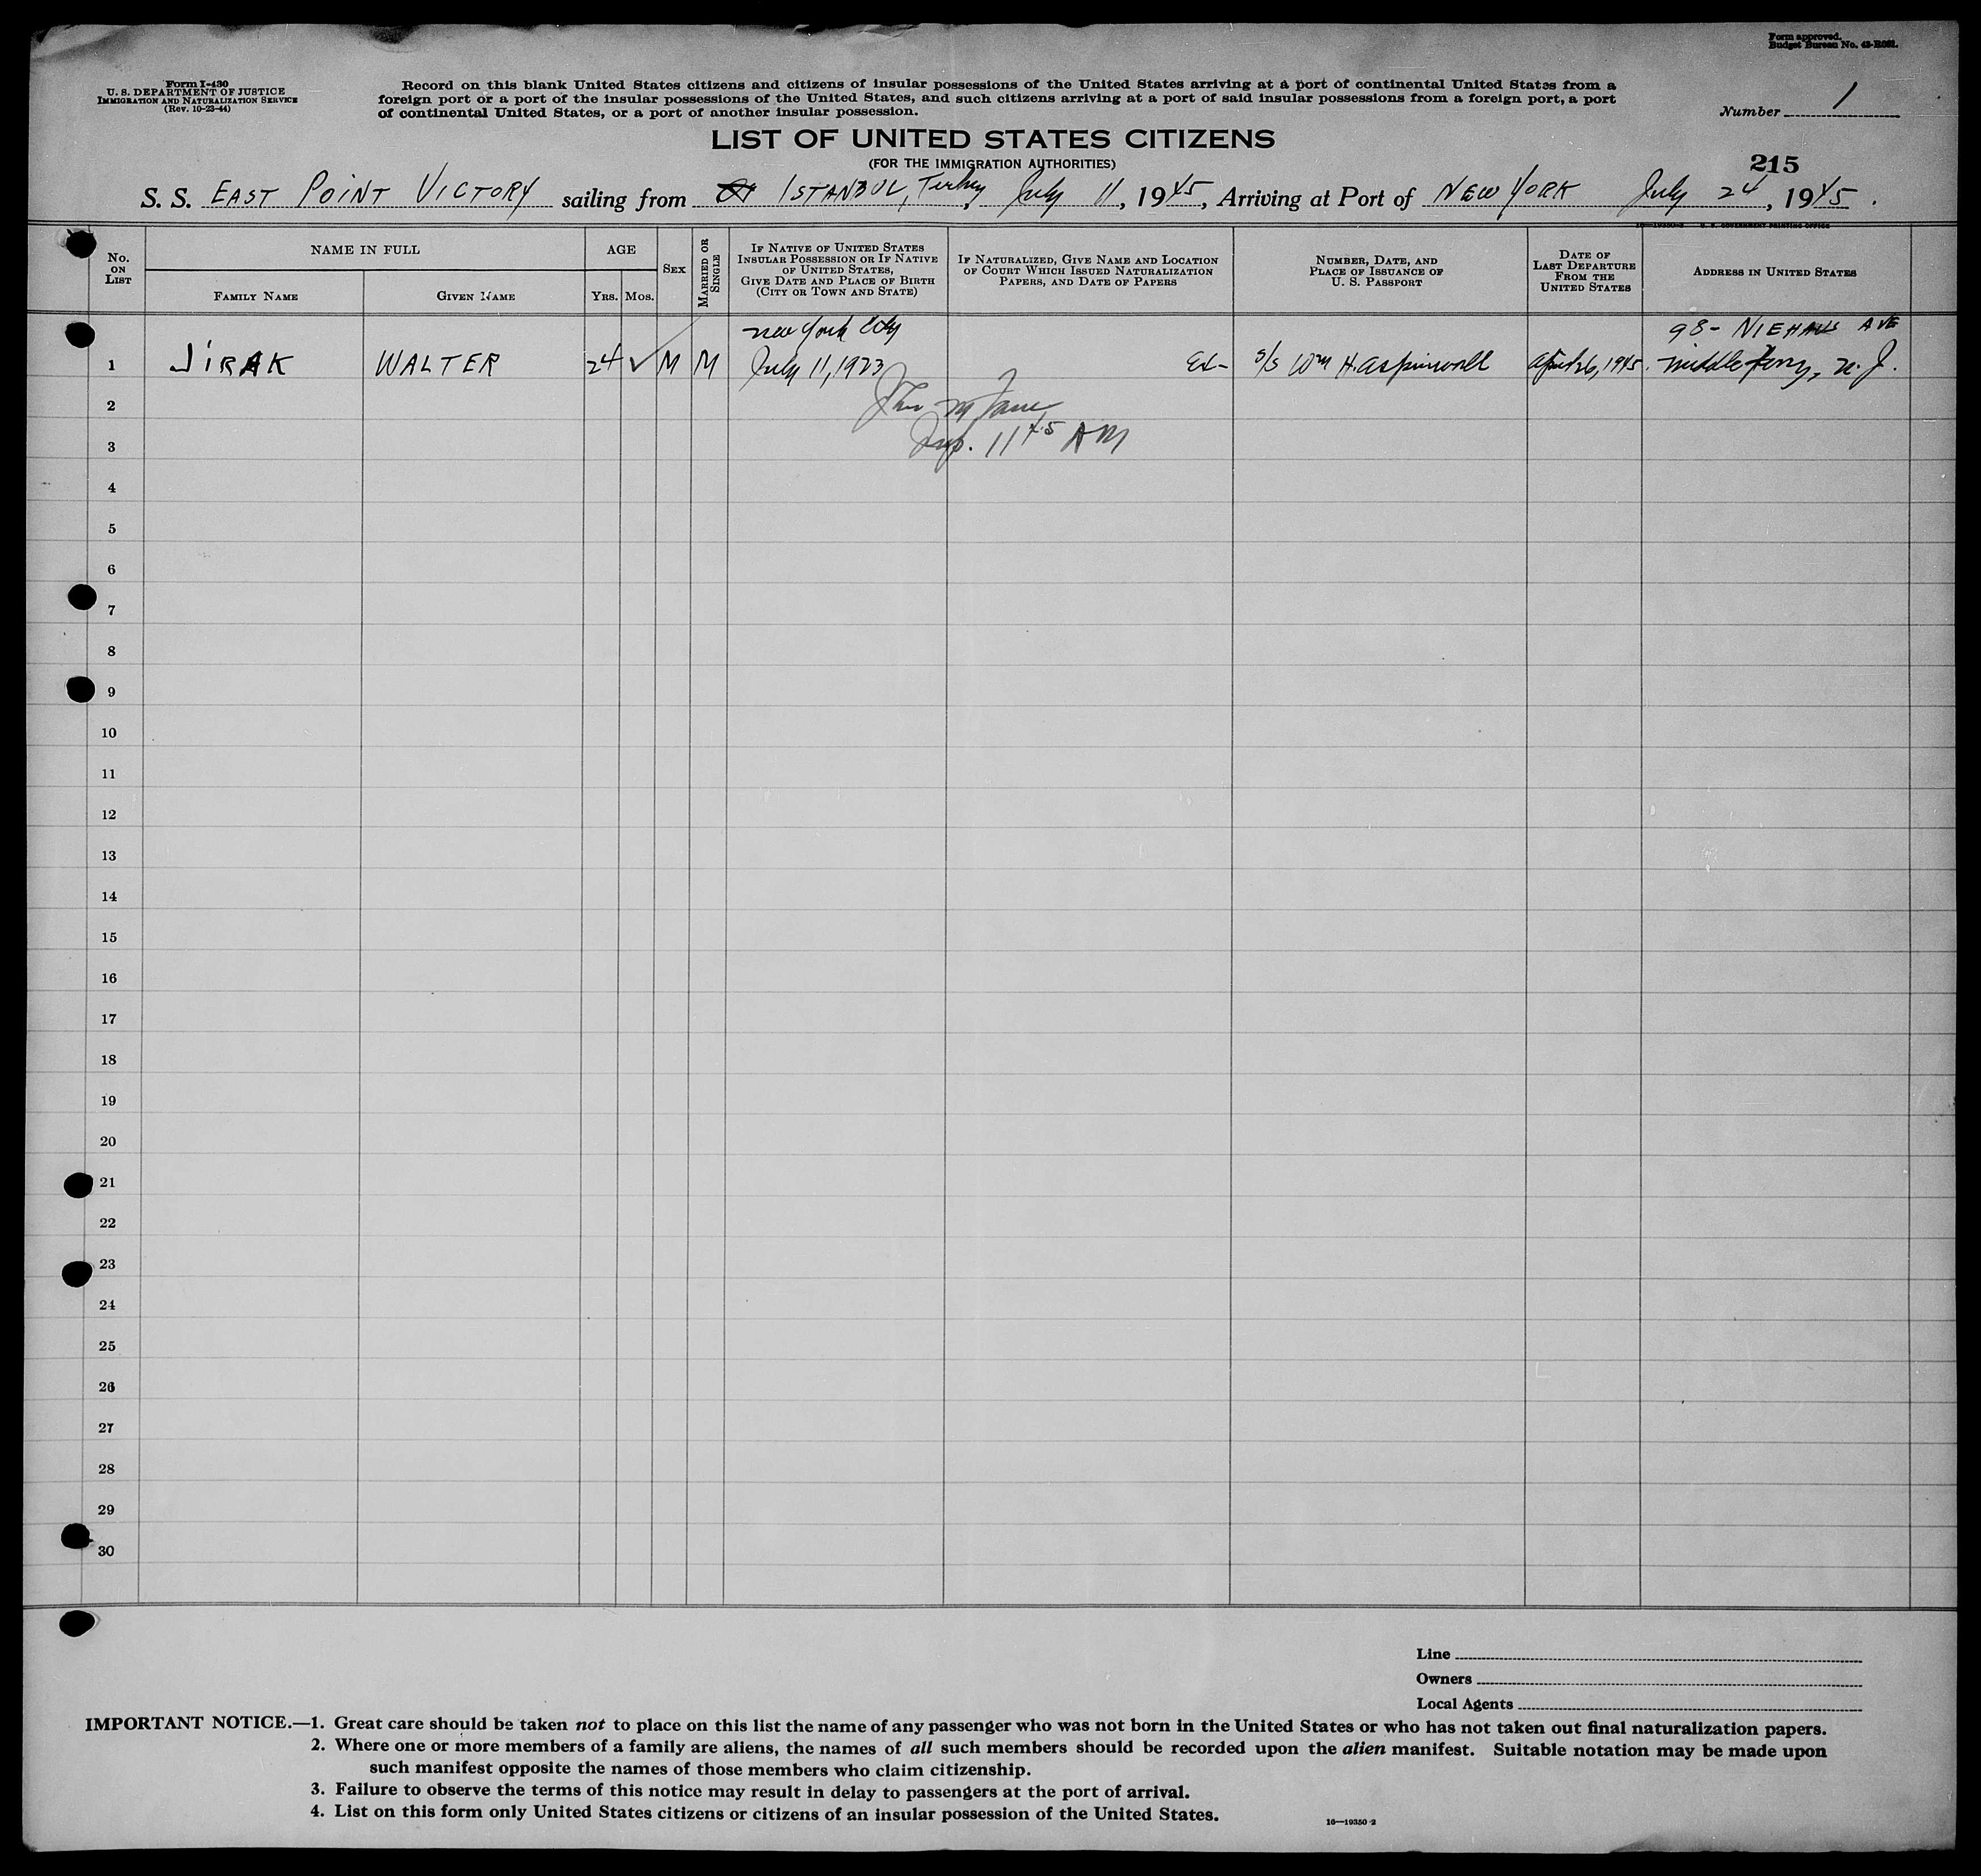 Form approved.
Budget Bureau No. 43-R081.
Form I-430
U. S. DEPARTMENT OF JUSTICE
IMMIGRATION AND NATURALIZATION SERVICE
(Rev. 10-23-44)
Record on this blank United States citizens and citizens of insular possessions of the United States arriving at a port of continental United States from a
foreign port or a port of the insular possessions of the United States, and such citizens arriving at a port of said insular possessions from a foreign port, a port
of continental United States, or a port of another insular possession.
Number 1
LIST OF UNITED STATES CITIZENS
(FOR THE IMMIGRATION AUTHORITIES)
215
S. S. EAST POINT VICTORY sailing from ISTANBUL, Turkey, July 11, 1945, Arriving at Port of NEW YORK July 24, 1945.
16—19350-2 U. S. GOVERNMENT PRINTING OFFICE
No. ON LIST
NAME IN FULL
FAMILY NAME
GIVEN NAME
AGE
YRS. MOS.
SEX
MARRIED OR SINGLE
IF NATIVE OF UNITED STATES
INSULAR POSSESSION OR IF NATIVE
OF UNITED STATES,
GIVE DATE AND PLACE OF BIRTH
(CITY OR TOWN AND STATE)
IF NATURALIZED, GIVE NAME AND LOCATION
OF COURT WHICH ISSUED NATURALIZATION
PAPERS, AND DATE OF PAPERS
NUMBER, DATE, AND
PLACE OF ISSUANCE OF
U. S. PASSPORT
DATE OF
LAST DEPARTURE
FROM THE
UNITED STATES
ADDRESS IN UNITED STATES
new York City 98- NIEHAUS AVE
1 JIRAK WALTER 24 ✓ M M July 11, 1923 Ex- S/S Wm H. Aspinwall April 26, 1945. middle ferry, n. J.
2
3 Insp. 11 45 AM
4
5
6
7
8
9
10
11
12
13
14
15
16
17
18
19
20
21
22
23
24
25
26
27
28
29
30
Line
Owners
Local Agents
IMPORTANT NOTICE.—1. Great care should be taken not to place on this list the name of any passenger who was not born in the United States or who has not taken out final naturalization papers.
2. Where one or more members of a family are aliens, the names of all such members should be recorded upon the alien manifest. Suitable notation may be made upon
such manifest opposite the names of those members who claim citizenship.
3. Failure to observe the terms of this notice may result in delay to passengers at the port of arrival.
4. List on this form only United States citizens or citizens of an insular possession of the United States.
16—19350-2